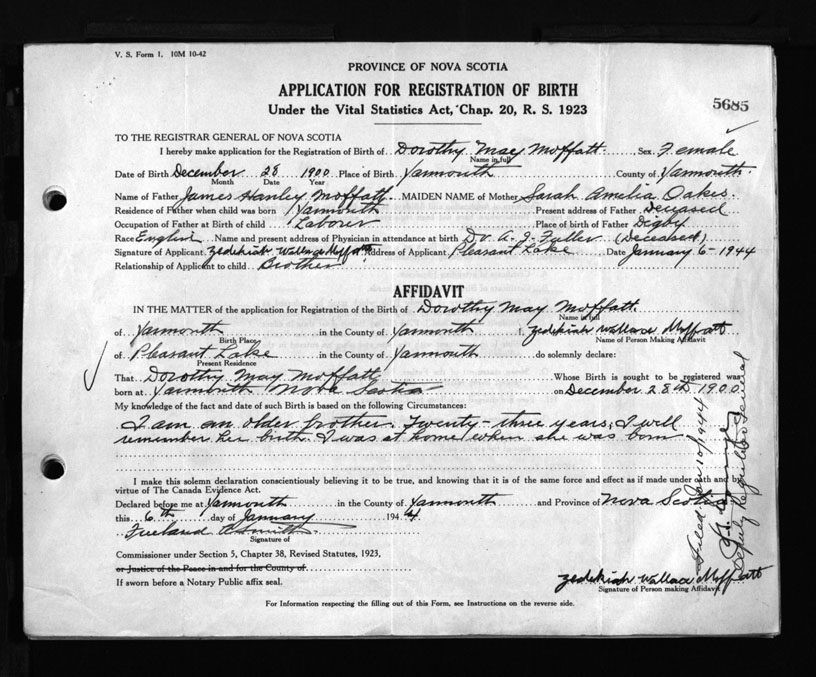 V. S. Form 1. 10M 10-42
PROVINCE OF NOVA SCOTIA
APPLICATION FOR REGISTRATION OF BIRTH
5685
Under the Vital Statistics Act, Chap. 20, R. S. 1923
TO THE REGISTRAR GENERAL OF NOVA SCOTIA
I hereby make application for the Registration of Birth of Dorothy May Moffatt Sex Female
Name in full
Date of Birth December 28 1900 Place of Birth Yarmouth County of Yarmouth
Month Date Year
Name of Father James Hanley Moffatt MAIDEN NAME of Mother Sarah Amelia Oakes
Residence of Father when child was born Yarmouth Present address of Father Deceased
Occupation of Father at Birth of child Laborer Place of birth of Father Digby
Race English Name and present address of Physician in attendance at birth Dr. A. J. Fuller (Deceased)
Signature of Applicant Zedekiah Wallace Moffatt Address of Applicant Pleasant Lake Date January 6 - 1944
Relationship of Applicant to child Brother
AFFIDAVIT
IN THE MATTER of the application for Registration of the Birth of Dorothy May Moffatt
Name in full
of Yarmouth in the County of Yarmouth I, Zedekiah Wallace Moffatt
Birth Place Name of Person Making Affidavit
of Pleasant Lake in the County of Yarmouth do solemnly declare:
Present Residence
That Dorothy May Moffatt Whose Birth is sought to be registered was
born at Yarmouth Nova Scotia on December 28th 1900
My knowledge of the fact and date of such Birth is based on the following Circumstances:
I am an older brother. Twenty-three years, I well
remember her birth. I was at home when she was born
I make this solemn declaration conscientiously believing it to be true, and knowing that it is of the same force and effect as if made under oath and by
virtue of The Canada Evidence Act.
Declared before me at Yarmouth in the County of Yarmouth and Province of Nova Scotia
this 6th day of January 1944
Freeland Smith
Signature of
Commissioner under Section 5, Chapter 38, Revised Statutes, 1923,
or Justice of the Peace in and for the County of
If sworn before a Notary Public affix seal.
Zedekiah Wallace Moffatt
Signature of Person making Affidavit
For Information respecting the filling out of this Form, see Instructions on the reverse side.
Filed Jan 10/1944
Deputy Registrar General